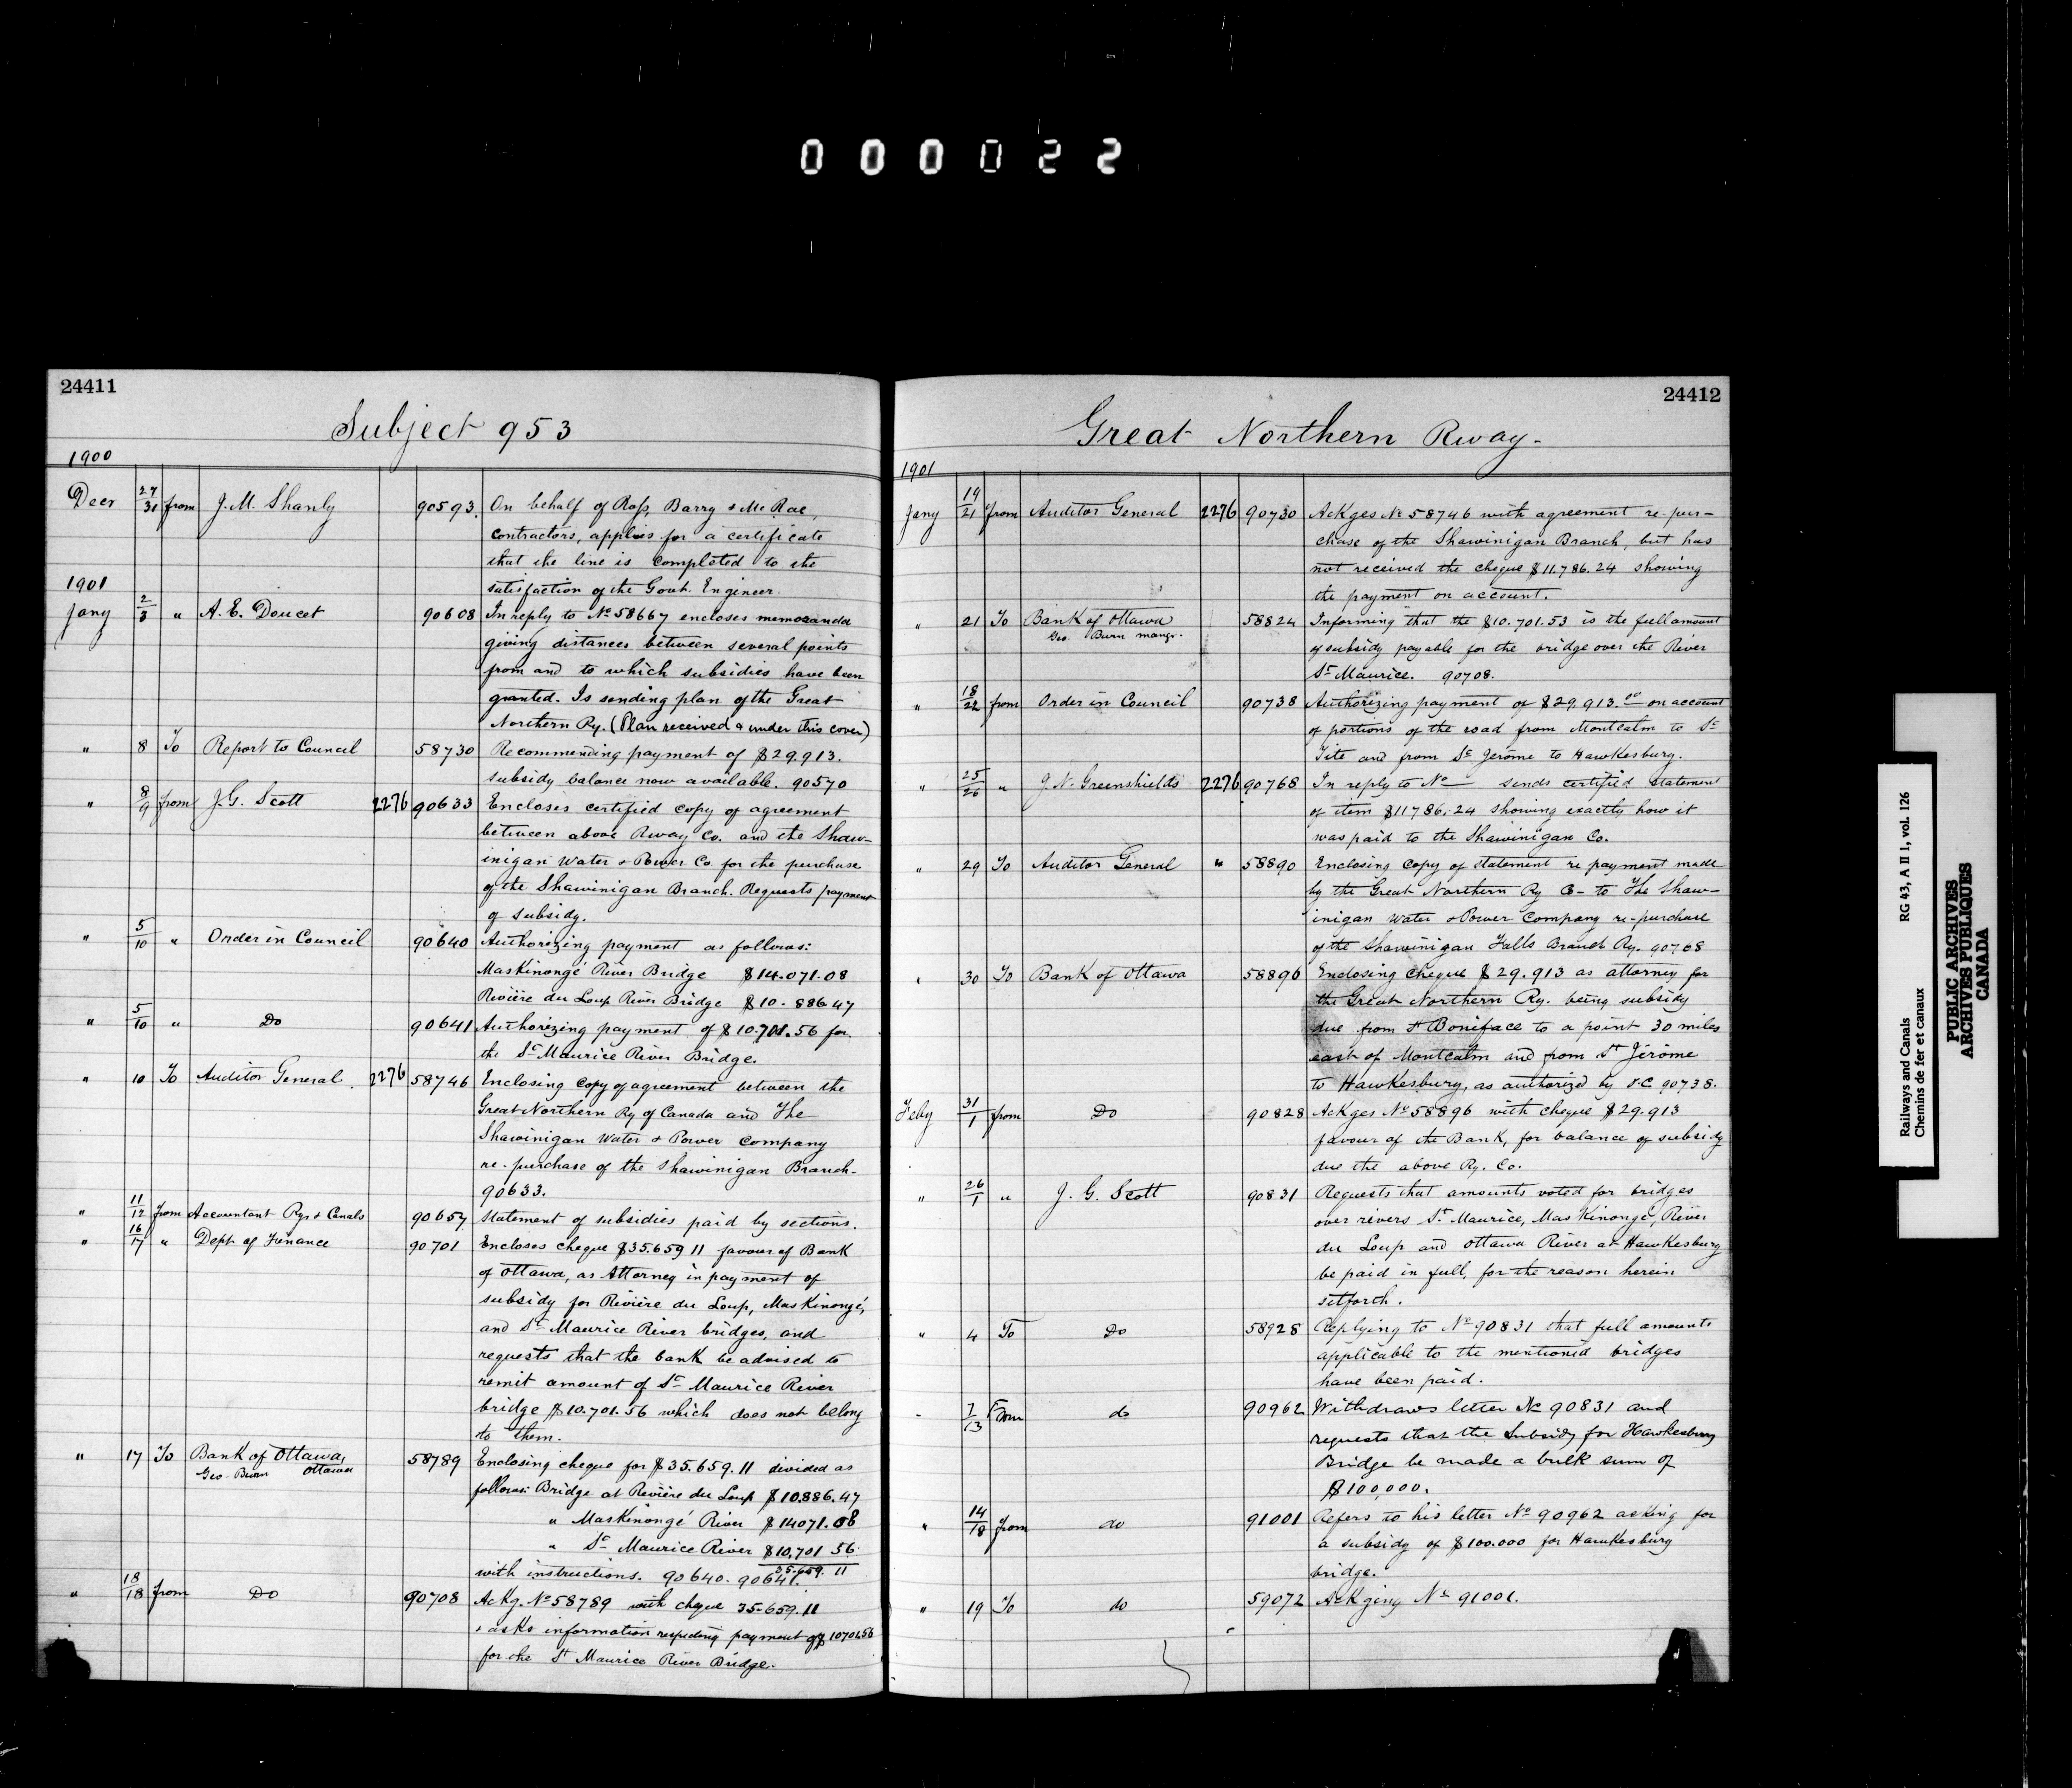 000022
24411
Subject 953
1900
Decr 27/31 from J. M. Shanly 90593. On behalf of Ross, Barry & McRae,
contractors, applies for a certificate
that the line is completed to the
satisfaction of the Govt. Engineer.
1901
Jany 2/3 " A. E. Doucet 90608 In reply to No 58667 encloses memoranda
giving distances between several points
from and to which subsidies have been
granted. Is sending plan of the Great
Northern Ry. (Plan received & under this cover)
" 8 To Report to Council 58730 Recommending payment of $29.913.
subsidy balance now available. 90570
" 8/9 from J. G. Scott 2276 90633 Encloses certified copy of agreement
between above Rway Co. and the Shaw-
inigan Water & Power Co for the purchase
of the Shawinigan Branch. Requests payment
of subsidy.
" 5/10 " Order in Council 90640 Authorizing payment as follows:
Maskinongé River Bridge $14.071.08
Rivière du Loup River Bridge $10.886.47
" 5/10 " Do 90641 Authorizing payment of $10.701.56 for
the St Maurice River Bridge.
" 10 To Auditor General. 2276 58746 Enclosing copy of agreement between the
Great Northern Ry of Canada and The
Shawinigan Water & Power Company
re-purchase of the Shawinigan Branch-
90633.
" 11/12 from Accountant Rys & Canals 90657 Statement of subsidies paid by sections.
" 16/17 " Dept of Finance 90701 Encloses cheque $35.659 11 favour of Bank
of Ottawa, as Attorney in payment of
subsidy for Rivière du Loup, Maskinongé,
and St Maurice River bridges, and
requests that the bank be advised to
remit amount of St Maurice River
bridge $10.701.56 which does not belong
to them.
" 17 To Bank of Ottawa, 58789 Enclosing cheque for $35.659.11 divided as
Geo. Burn Ottawa
follows: Bridge at Rivière du Loup $10.886.47
" Maskinongé River $14071.08
" St Maurice River $10,701 56.
35.659.11
with instructions. 90640. 90641.
" 18/18 from Do 90708 Ackg. No 58789 with cheque 35.659.11
& asks information respecting payment of $10701.56
for the St Maurice River Bridge.
24412
Great Northern Rway-
1901
Jany 19/21 from Auditor General 2276 90730 Ackges No 58746 with agreement re-pur-
chase of the Shawinigan Branch, but has
not received the cheque $11.786.24 showing
the payment on account.
" 21 To Bank of Ottawa 58824 Informing that the $10.701.53 is the full amount
Geo. Burn mangr.
of subsidy payable for the bridge over the River
St Maurice. 90708.
" 18/22 from Order in Council 90738 Authorizing payment of $29.913.00 on account
of portions of the road from Montcalm to St
Tite and from St Jérôme to Hawkesbury.
" 25/26 " J. N. Greenshields 2276 90768 In reply to No — sends certified statement
of item $11786.24 showing exactly how it
was paid to the Shawinigan Co.
" 29 To Auditor General " 58890 Enclosing copy of statement re payment made
by the Great Northern Ry Co- to The Shaw-
inigan Water & Power Company re-purchase
of the Shawinigan Falls Branch Ry. 90768
" 30 To Bank of Ottawa 58896 Enclosing cheque $29.913 as attorney for
the Great Northern Ry. being subsidy
due from St Boniface to a point 30 miles
east of Montcalm and from St Jérôme
to Hawkesbury, as authorized by O.C. 90738.
Feby 31/1 from Do 90828 Ackges No 58896 with cheque $29.913
favour of the Bank, for balance of subsidy
due the above Ry. Co.
" 26/1 " J. G. Scott 90831 Requests that amounts voted for bridges
over rivers St. Maurice, Maskinongé, River
du Loup and Ottawa River at Hawkesbury
be paid in full, for the reason herein
setforth.
" 4 To Do 58928 Replying to No 90831 that full amounts
applicable to the mentioned bridges
have been paid.
" 7/13 From do 90962 Withdraws letter No 90831 and
requests that the subsidy for Hawkesbury
Bridge be made a bulk sum of
$100,000.
" 14/18 from do 91001 Refers to his letter No 90962 asking for
a subsidy of $100.000 for Hawkesbury
bridge.
" 19 To do 59072 Ackging No 91001.
Railways and Canals RG 43, A II 1, vol. 126
Chemins de fer et canaux
PUBLIC ARCHIVES
ARCHIVES PUBLIQUES
CANADA